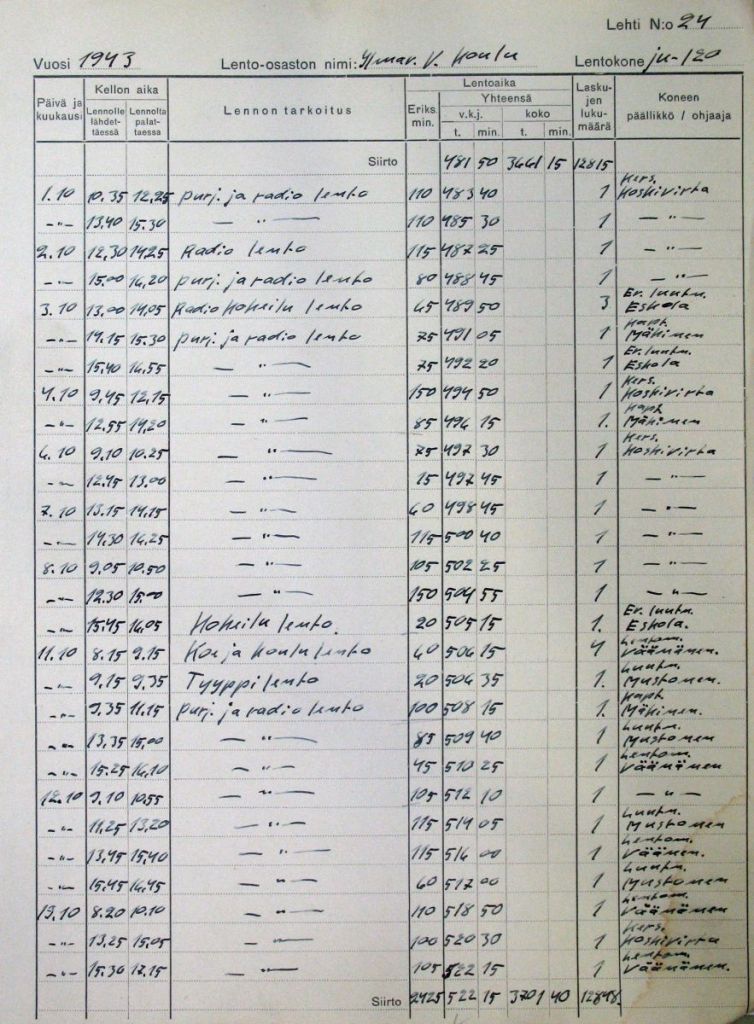 Lehti N:o 24
Vuosi 1943 Lento-osaston nimi: Ilmav. V. Koulu Lentokone ju-120
Päivä ja kuukausi Kellon aika Lennolle lähdettäessä Lennolta palattaessa Lennon tarkoitus Lentoaika Eriks. min. Yhteensä v.k.j. t. min. koko t. min. Laskujen lukumäärä Koneen päällikkö / ohjaaja
Siirto 481 50 3661 15 12815
1.10 10.35 12.25 purj. ja radio lento 110 483 40 1 Kers. Koskivirta
-"- 13.40 15.30 — " — 110 485 30 1 — " —
2.10 12.30 14.25 Radio lento 115 487 25 1 — " —
-"- 15.00 16.20 purj. ja radio lento 80 488 45 1 — " —
3.10 13.00 14.05 Radio Kokeilu lento 65 489 50 3 Er. luutn. Eskola
-"- 14.15 15.30 purj. ja radio lento 75 491 05 1 Kapt. Mäkinen
-"- 15.40 16.55 — " — 75 492 20 1 Er. luutn. Eskola
4.10 9.45 12.15 — " — 150 494 50 1 Kers. Koskivirta
-"- 12.55 14.20 — " — 85 496 15 1. Kapt. Mäkinen
6.10 9.10 10.25 — " — 75 497 30 1 Kers. Koskivirta
-"- 12.45 13.00 — " — 15 497 45 1 — " —
7.10 13.15 14.15 — " — 60 498 45 1 — " —
-"- 14.30 16.25 — " — 115 500 40 1 — " —
8.10 9.05 10.50 — " — 105 502 25 1 — " —
-"- 12.30 15.00 — " — 150 504 55 1 — " —
-"- 15.45 16.05 Kokeilu lento. 20 505 15 1. Er. luutn. Eskola.
11.10 8.15 9.15 Koe ja koulu lento 60 506 15 4 Lentom. Väänänen.
-"- 9.15 9.35 Tyyppi lento 20 506 35 1. Luutn. Mustonen.
-"- 9.35 11.15 purj. ja radio lento 100 508 15 1. Kapt. Mäkinen.
-"- 13.35 15.00 — " — 85 509 40 1 Luutn. Mustonen
-"- 15.25 16.10 — " — 45 510 25 1 Lentom. Väänänen
12.10 9.10 10.55 — " — 105 512 10 1 — " —
-"- 11.25 13.20 — " — 115 514 05 1 Luutn. Mustonen
-"- 13.45 15.40 — " — 115 516 00 1 Lentom. Väänen.
-"- 15.45 16.45 — " — 60 517 00 1 Luutn. Mustonen
13.10 8.20 10.10 — " — 110 518 50 1 Lentom. Väänänen
-"- 13.25 15.05 — " — 100 520 30 1 Kers. Koskivirta
-"- 15.30 17.15 — " — 105 522 15 1 Lentom. Väänänen.
Siirto 2425 522 15 3701 40 12848.